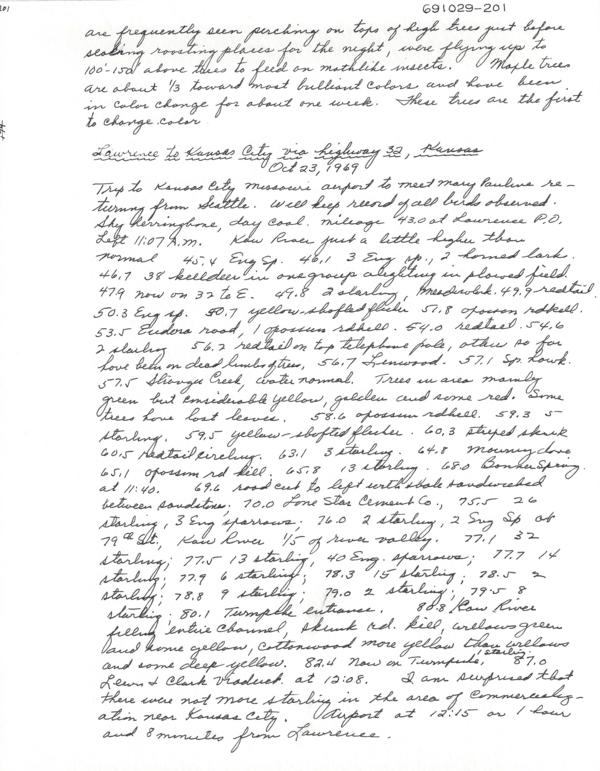 201
691029-201
are frequently seen perching on tops of high trees just before
seeking roosting places for the night, were flying up to
100'-150' above trees to feed on mothlike insects. Maple trees
are about 1/3 toward most brilliant colors and have been
in color change for about one week. These trees are the first
to change color.
Lawrence to Kansas City via highway 32, Kansas
Oct 23, 1969
Trip to Kansas City Missouri airport to meet Mary Pauline re-
turning from Seattle. Will keep record of all birds observed.
Sky herringbone, day cool. mileage 43.0 at Lawrence P.O.
Left 11:07 A.M. Kaw River just a little higher than
normal 45.4 Eng Sp. 46.1 3 Eng sp., 2 horned lark.
46.7 38 killdeer in one group alighting in plowed field.
47.9 now on 32 to E. 49.8 2 starling, meadowlark. 49.9 redtail.
50.3 Eng sp. 50.7 yellow-shafted flicker 51.8 opossum rdkill.
53.5 Eudora road, 1 opossum rdkill. 54.0 redtail. 54.6
2 starling 56.2 redtail on top telephone pole, others so far
have been on dead limbs of trees, 56.7 Linwood. 57.1 Sp. hawk.
57.5 Stranger Creek, water normal. Trees in area mainly
green but considerable yellow, golden and some red. Some
trees have lost leaves. 58.6 opossum rdkill. 59.3 5
starling. 59.5 yellow-shafted flicker. 60.3 striped skunk
60.5 redtail circling. 63.1 3 starling. 64.8 mourning dove,
65.1 opossum rd kill. 65.8 13 starling. 68.0 Bonner Spring
at 11:40. 69.6 road cut to left with shale sandwiched
between sandstone; 70.0 Lone Star Cement Co., 75.5 26
starling, 3 Eng sparrows; 76.0 2 starling, 2 Eng Sp at
79th St., Kaw River 1/5 of river valley. 77.1 32
starling; 77.5 13 starling, 40 Eng. sparrows; 77.7 14
starling; 77.9 6 starling; 78.3 15 starling; 78.5 2
starling; 78.8 9 starling; 79.0 2 starling; 79.5 8
starling; 80.1 Turnpike entrance. 80.8 Kaw River
filling entire channel, skunk rd. kill, willows green
and some yellow, cottonwood more yellow than willows
and some deep yellow. 82.4 Now on Turnpike, 1 starling. 87.0
Lewis & Clark Viaduct at 12:08. I am surprised that
there were not more starling in the area of commercializ-
ation near Kansas City. Airport at 12:15 or 1 hour
and 8 minutes from Lawrence.